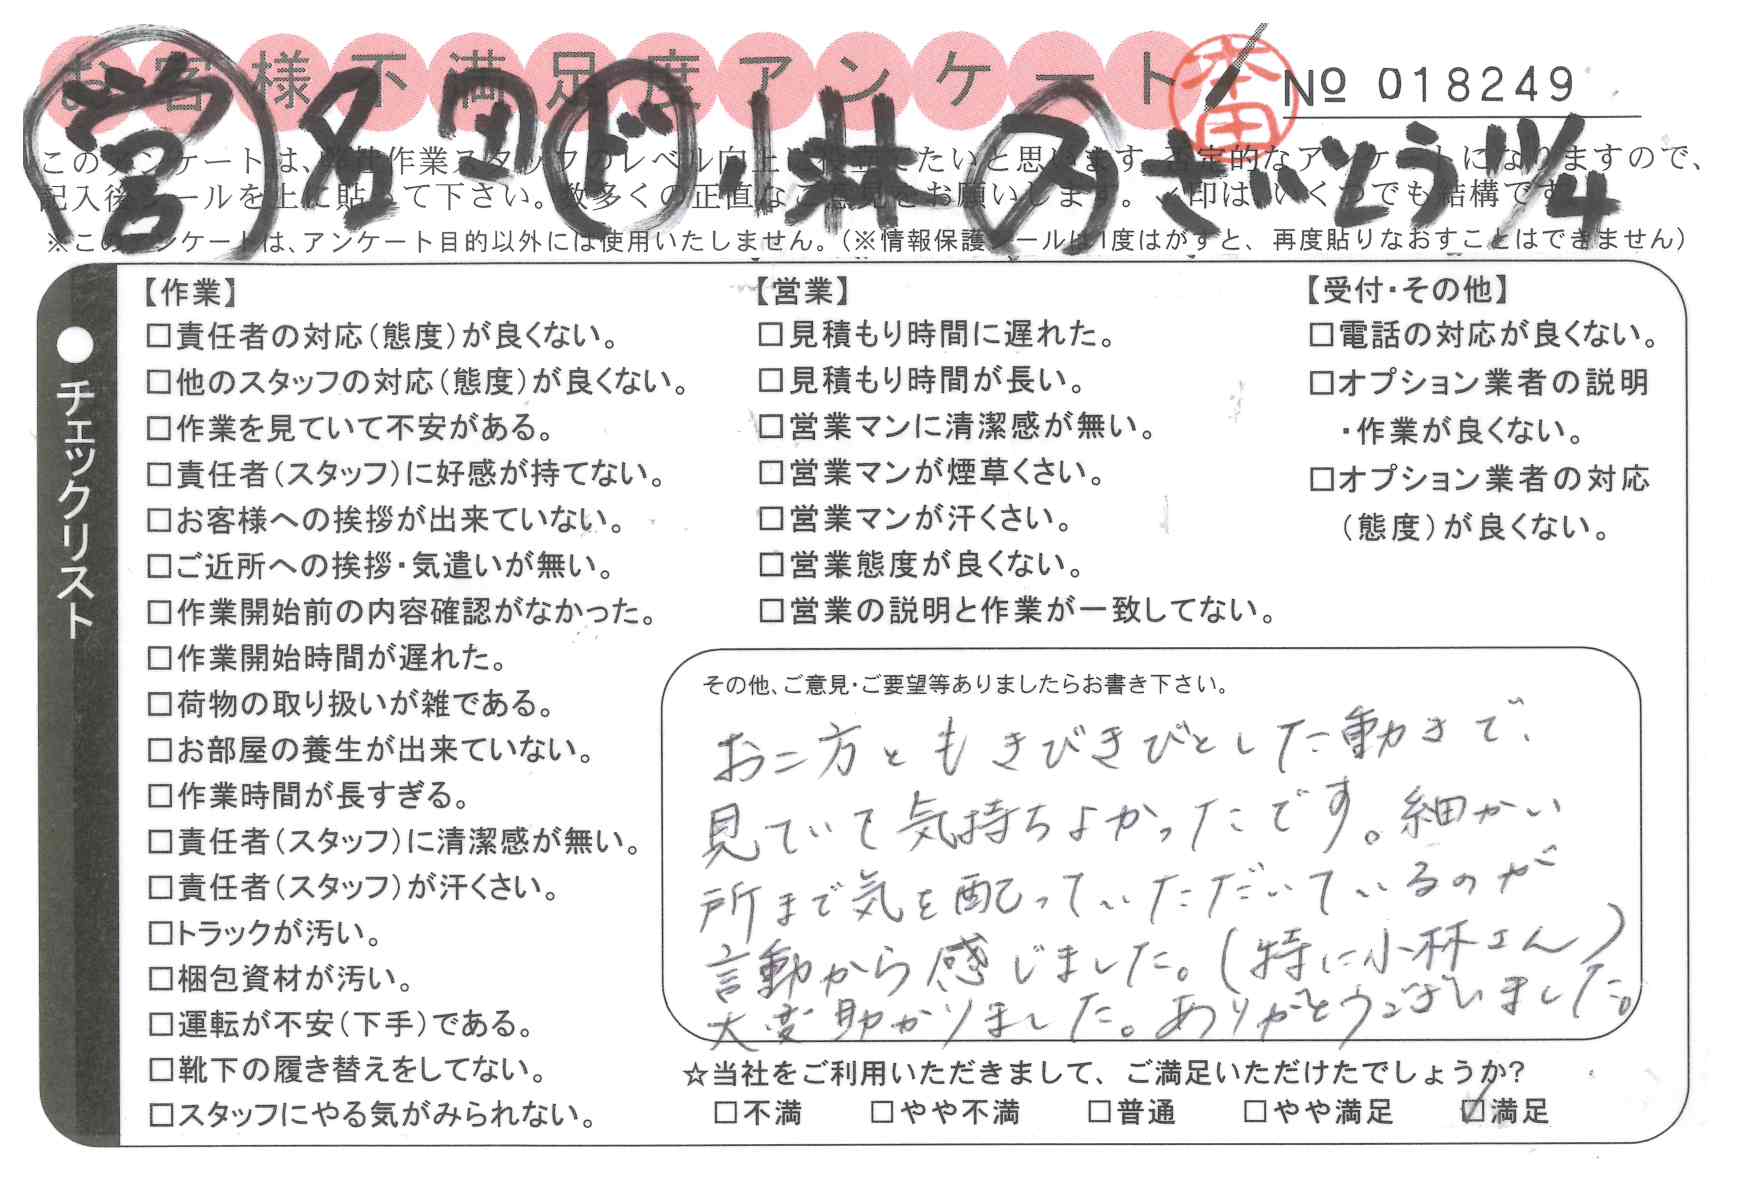 お客様不満足度アンケート
本田
No 018249
営 名田 ド 小林 〆 さいとう 11/4
このアンケートは、弊社作業スタッフのレベル向上に役立てたいと思います。否定的なアンケートになりますので、
記入後シールを上に貼って下さい。数多くの正直なご意見をお願いします。✓印は、いくつでも結構です。
※このアンケートは、アンケート目的以外には使用いたしません。(※情報保護シールは1度はがすと、再度貼りなおすことはできません)
●チェックリスト
【作業】
□責任者の対応(態度)が良くない。
□他のスタッフの対応(態度)が良くない。
□作業を見ていて不安がある。
□責任者(スタッフ)に好感が持てない。
□お客様への挨拶が出来ていない。
□ご近所への挨拶・気遣いが無い。
□作業開始前の内容確認がなかった。
□作業開始時間が遅れた。
□荷物の取り扱いが雑である。
□お部屋の養生が出来ていない。
□作業時間が長すぎる。
□責任者(スタッフ)に清潔感が無い。
□責任者(スタッフ)が汗くさい。
□トラックが汚い。
□梱包資材が汚い。
□運転が不安(下手)である。
□靴下の履き替えをしてない。
□スタッフにやる気がみられない。
【営業】
□見積もり時間に遅れた。
□見積もり時間が長い。
□営業マンに清潔感が無い。
□営業マンが煙草くさい。
□営業マンが汗くさい。
□営業態度が良くない。
□営業の説明と作業が一致してない。
【受付・その他】
□電話の対応が良くない。
□オプション業者の説明
・作業が良くない。
□オプション業者の対応
(態度)が良くない。
その他、ご意見・ご要望等ありましたらお書き下さい。
お二方ともきびきびとした動きで、
見ていて気持ちよかったです。細かい
所まで気を配っていただいているのが
言動から感じました。(特に小林さん)
大変助かりました。ありがとうございました。
☆当社をご利用いただきまして、ご満足いただけたでしょうか?
□不満 □やや不満 □普通 □やや満足 ☑満足